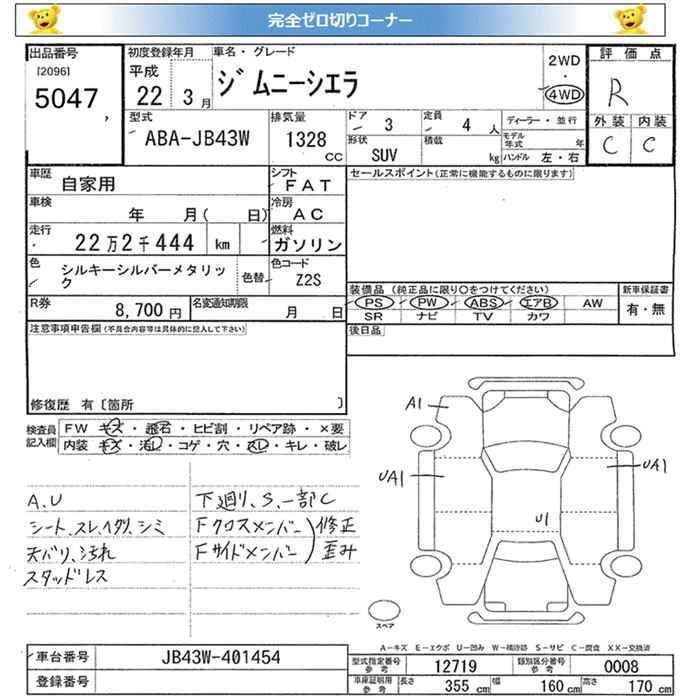 完全ゼロ切りコーナー
出品番号
[2096]
5047
初度登録年月
平成
22年 3月
車名・グレード
ジムニーシエラ
2WD
・
4WD
評価点
R
外装 内装
C C
型式
ABA-JB43W
排気量
1328
CC
ドア 3
定員 4 人
ディーラー・並行
形状
SUV
積載 kg
モデル年式 年
ハンドル 左・右
車歴
自家用
シフト
FAT
セールスポイント(正常に機能するものに限ります)
車検
年 月( 日)
冷房
AC
走行
22万2千444 km
燃料
ガソリン
色
シルキーシルバーメタリック
色替
色コード
Z2S
装備品 (純正品に限り〇をつけてください)
新車保証書
PS PW ABS エアB AW
有・無
SR ナビ TV カワ
R券
8,700円
名変通知期限
月 日
後日品
注意事項申告欄(不具合内容等は具体的に記入して下さい)
修復歴 有〔箇所 〕
検査員記入欄
FW キズ・飛石・ヒビ割・リペア跡・×要
内装 キズ・汚レ・コゲ・穴・スレ・キレ・破レ
A、U
シート、スレ、ヘタリ、シミ
天バリ、汚れ
スタッドレス
下廻り、S、一部C
Fクロスメンバー
Fサイドメンバー
修正
歪み
A1
UA1
UA1
U1
スペア
A…キズ E…エクボ U…凹み W…補修跡 S…サビ C…腐食 XX…交換済
車台番号
JB43W-401454
登録番号
型式指定番号
参考
12719
類別区分番号
参考
0008
車庫証明用
参考
長さ 355 cm
幅 160 cm
高さ 170 cm